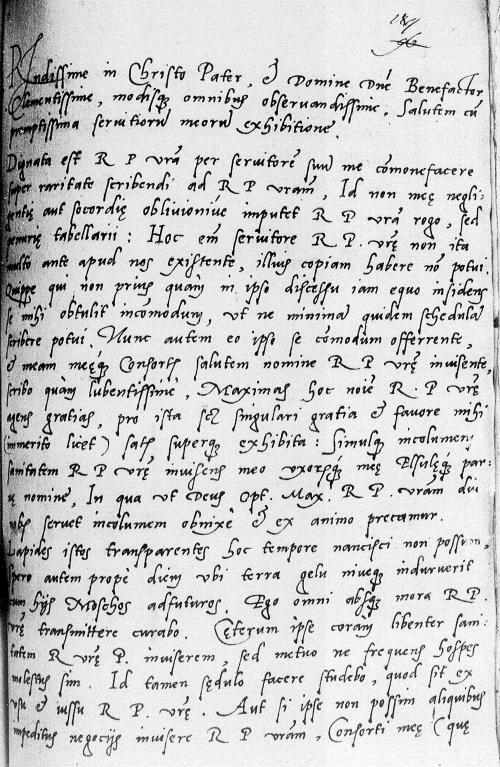 Rndissime in Christo Pater, & Domine Dne Benefactor
Clementissime, modisq3 omnibus observandissime, Salutem cū
promptissima servitiorū meorū exhibitione.
Dignata est R P vrā per servitorē suū me cōmonefacere
super raritate scribendi ad R P vram, Id non meę negli-
gentię aut socordię oblivionive imputet R P vrā rogo, sed
penurię tabellarii: Hoc em̄ servitore R. P. vrę non ita
multo ante apud nos existente, illius copiam habere nō potui
Quippe qui non prius quam in ipso discessu iam equo insidens
se mihi obtulit incomodum, ut ne minima quidem schedula
scribere potui. Nunc autem eo ipso se cōmodum offerrente,
& meam meęq3 Consortis salutem nomine R P vrę invisente,
scribo quam lubentissime, Maximas hoc noīe R. P vrę
agens gratias, pro ista scz singulari gratia & favore mihi
(immerito licet) satis superq3 exhibita: Simulq3 incolumem
sanitatem R P vrę invisens meo uxorisq3 meę Elsulęq3 par:
nomine, In qua ut Deus Opt. Max. R P. vram diu
nobis servet incolumem obnixè & ex animo precamur.
Lapides istos transparentes hoc tempore nancisci non possum,
spero autem prope diem ubi terra gelu niveq3 induruerit
cum hijs Moschos adfuturos. Ego omni absq3 mora R P.
vrę transmittere curabo. Cęterum ipse coram libenter sani:
tatem R vrę P. inviserem, sed metuo ne frequens hospes
molestus sim. Id tamen sędulo facere studebo, quod sit ex
usu & iussu R P. vrę. Aut si ipse non possim aliquibus
impeditus negocijs invisere R P vram, Consorti meę (quę